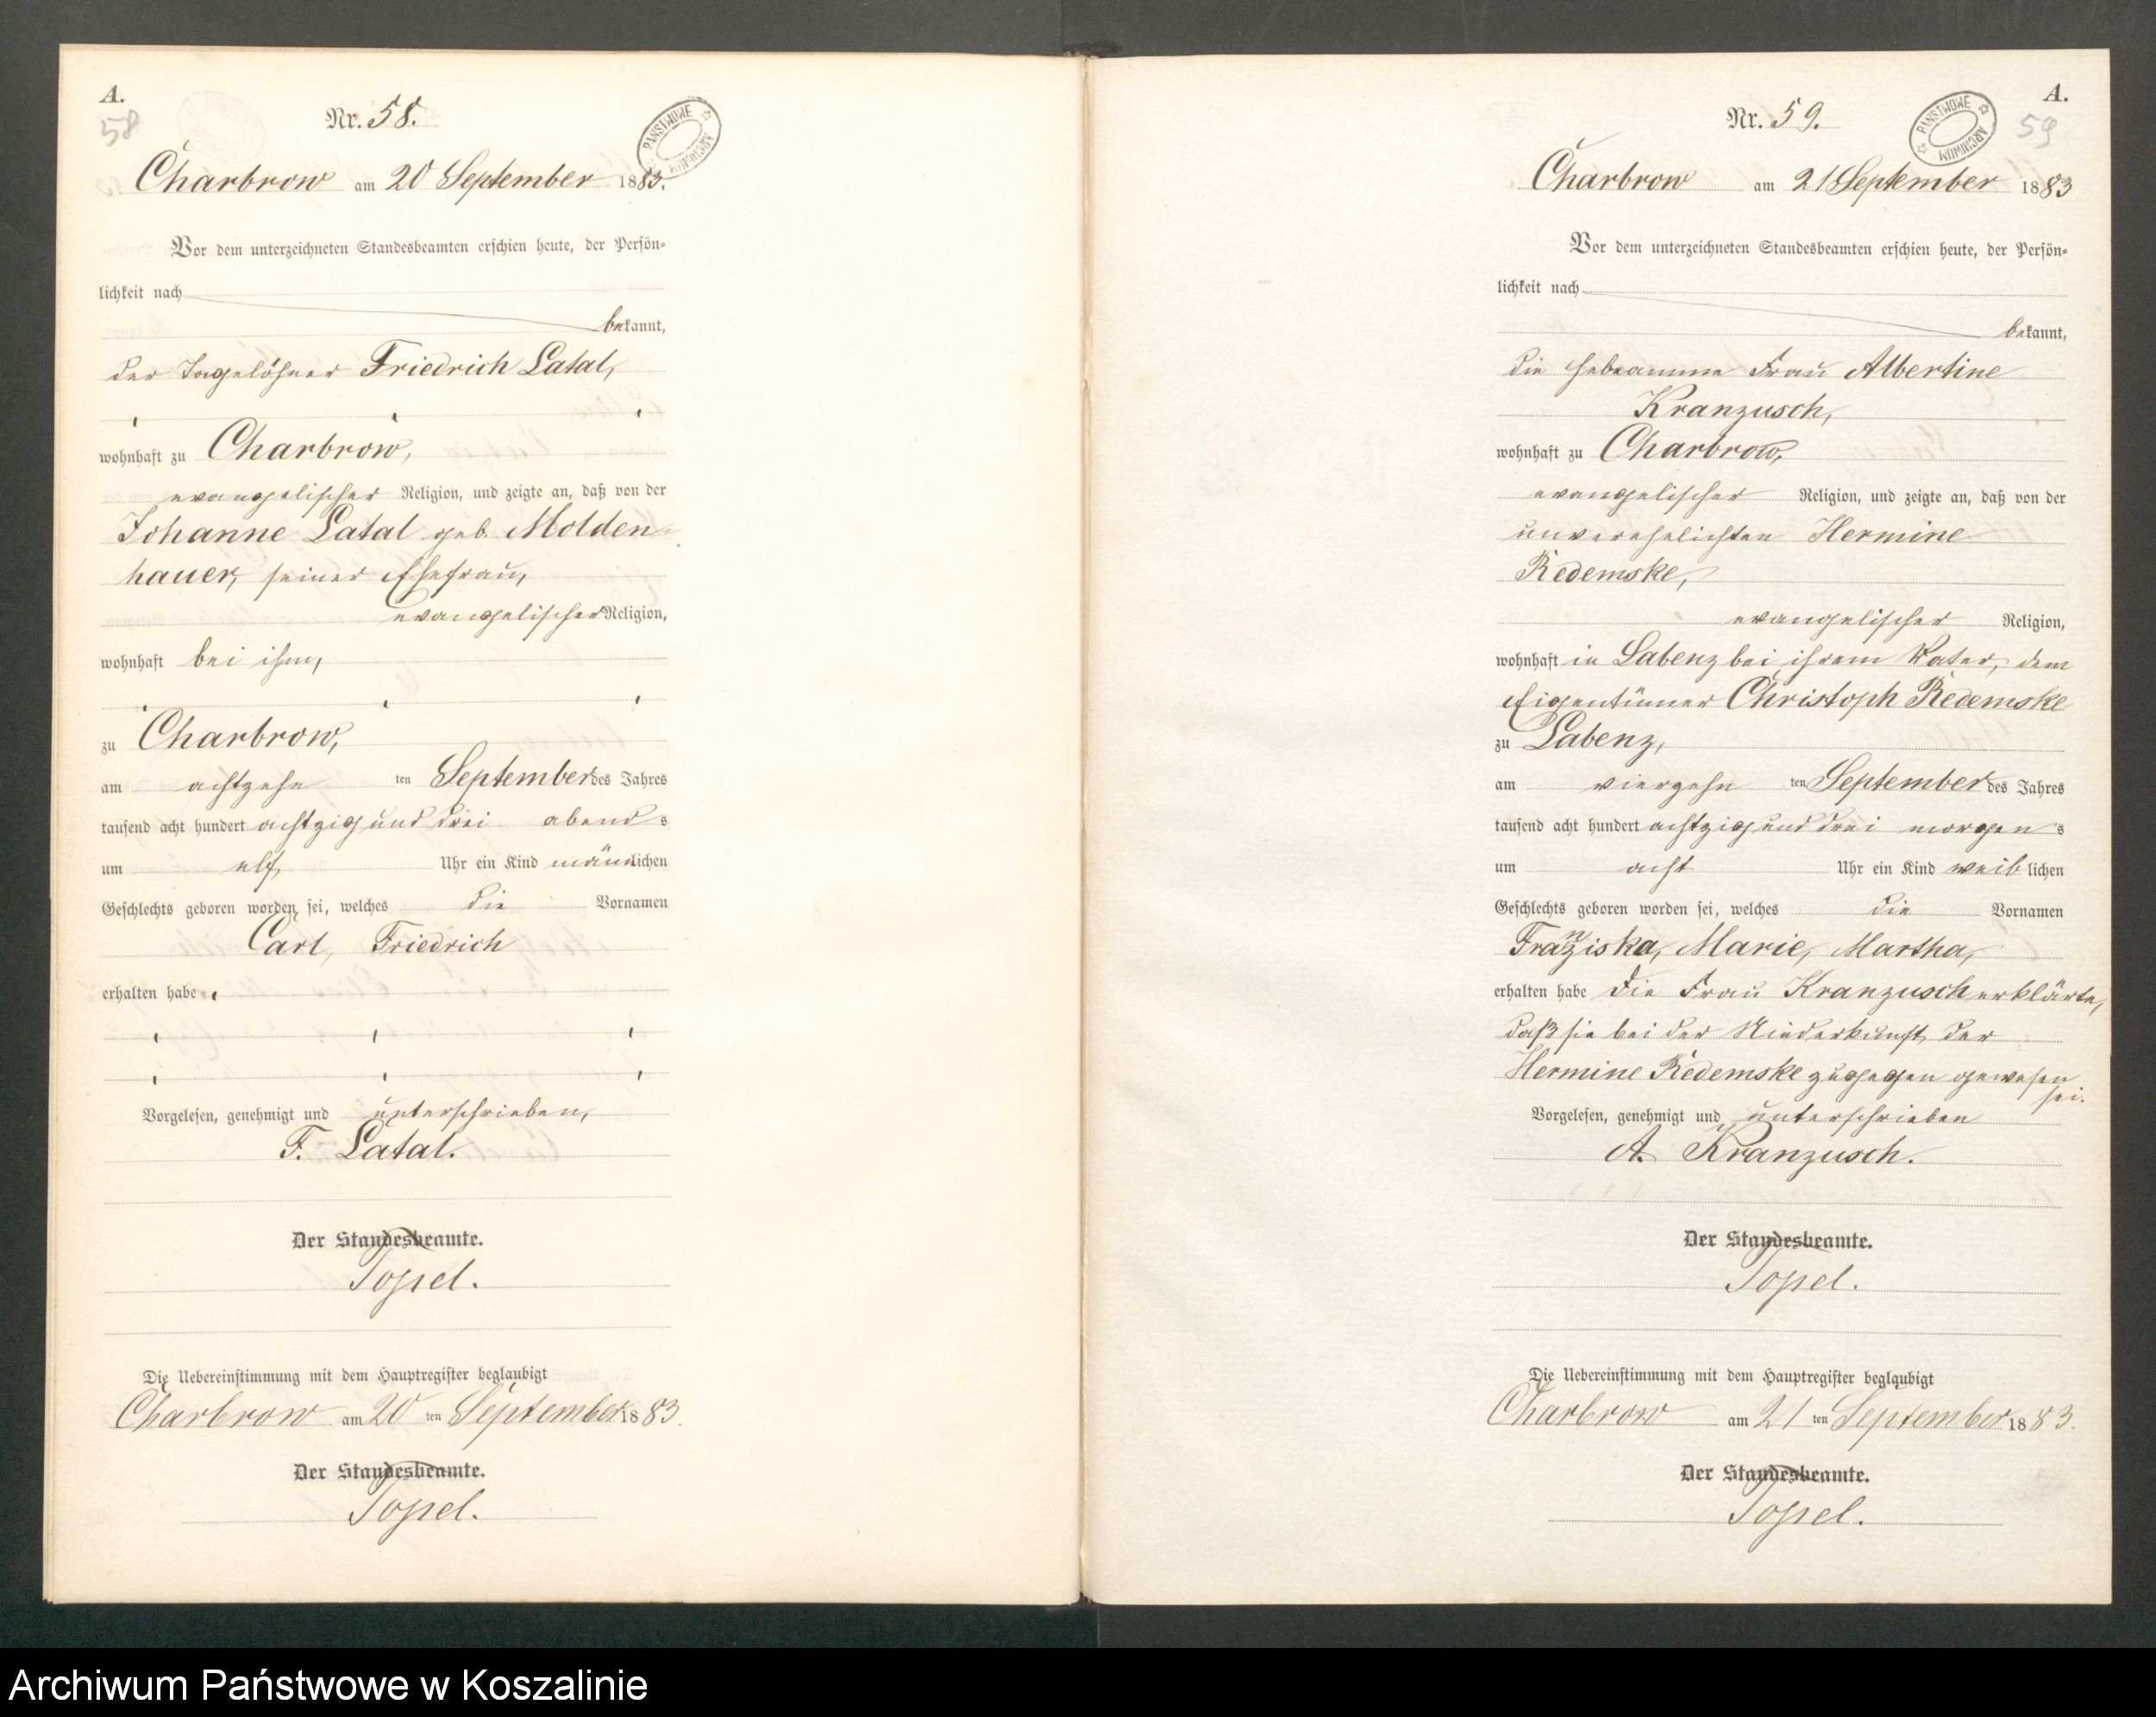 A.
58
Nr. 58.
PAŃSTWOWE ARCHIWUM
Charbrow am 20 September 1883.
Vor dem unterzeichneten Standesbeamten erschien heute, der Persön-
lichkeit nach
bekannt,
der Tagelöhner Friedrich Latal,
wohnhaft zu Charbrow,
evangelischer Religion, und zeigte an, daß von der
Johanne Latal geb. Molden-
hauer, seiner Ehefrau,
evangelischer Religion,
wohnhaft bei ihm,
zu Charbrow,
am achtzehn ten September des Jahres
tausend acht hundert achtzig und drei abends
um elf Uhr ein Kind männlichen
Geschlechts geboren worden sei, welches die Vornamen
Carl, Friedrich
erhalten habe
Vorgelesen, genehmigt und unterschrieben,
F. Latal.
Der Standesbeamte.
Topel.
Die Uebereinstimmung mit dem Hauptregister beglaubigt
Charbrow am 20 ten September 1883.
Der Standesbeamte.
Topel.
A.
59
Nr. 59.
PAŃSTWOWE ARCHIWUM
Charbrow am 21 September 1883
Vor dem unterzeichneten Standesbeamten erschien heute, der Persön-
lichkeit nach
bekannt,
die Hebeamme Frau Albertine
Kranzusch,
wohnhaft zu Charbrow,
evangelischer Religion, und zeigte an, daß von der
unverehelichten Hermine
Redemske,
evangelischer Religion,
wohnhaft in Labenz bei ihrem Vater, dem
Eigentümer Christoph Redemske
zu Labenz,
am vierzehn ten September des Jahres
tausend acht hundert achtzig und drei morgens
um acht Uhr ein Kind weiblichen
Geschlechts geboren worden sei, welches die Vornamen
Franziska, Marie, Martha,
erhalten habe Die Frau Kranzusch erklärte,
daß sie bei der Niederkunft der
Hermine Redemske zugegen gewesen
sei.
Vorgelesen, genehmigt und unterschrieben
A. Kranzusch.
Der Standesbeamte.
Topel.
Die Uebereinstimmung mit dem Hauptregister beglaubigt
Charbrow am 21 ten September 1883.
Der Standesbeamte.
Topel.
Archiwum Państwowe w Koszalinie